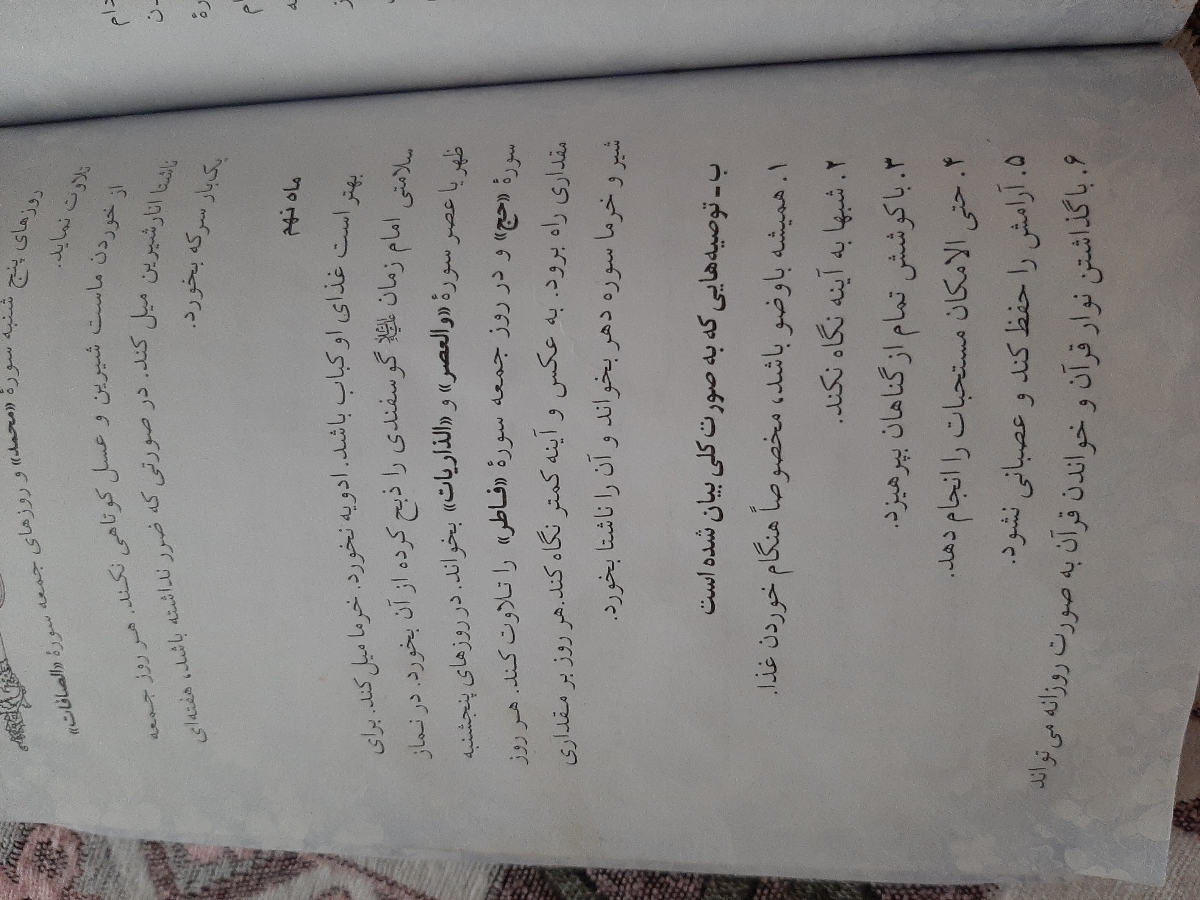 روزهای پنج شنبه سورهٔ «محمد» و روزهای جمعه سورهٔ «الصافات»
تلاوت نماید.
از خوردن ماست شیرین و عسل کوتاهی نکند. هر روز جمعه
ناشتا انار شیرین میل کند. در صورتی که ضرر نداشته باشد، هفته‌ای
یک‌بار سرکه بخورد.
ماه نهم
بهتر است غذای او کباب باشد. ادویه نخورد. خرما میل کند. برای
سلامتی امام زمان علیه السلام گوسفندی را ذبح کرده از آن بخورد. در نماز
ظهر یا عصر سورهٔ «والعصر» و «الذاریات» بخواند. در روزهای پنجشنبه
سورهٔ «حج» و در روز جمعه سورهٔ «فاطر» را تلاوت کند. هر روز
مقداری راه برود. به عکس و آینه کمتر نگاه کند. هر روز بر مقداری
شیر و خرما سوره دهر بخواند و آن را ناشتا بخورد.
ب ـ توصیه‌هایی که به صورت کلی بیان شده است
۱. همیشه باوضو باشد، مخصوصاً هنگام خوردن غذا.
۲. شبها به آینه نگاه نکند.
۳. با کوشش تمام از گناهان بپرهیزد.
۴. حتی الامکان مستحبات را انجام دهد.
۵. آرامش را حفظ کند و عصبانی نشود.
۶. با گذاشتن نوار قرآن و خواندن قرآن به صورت روزانه می‌تواند